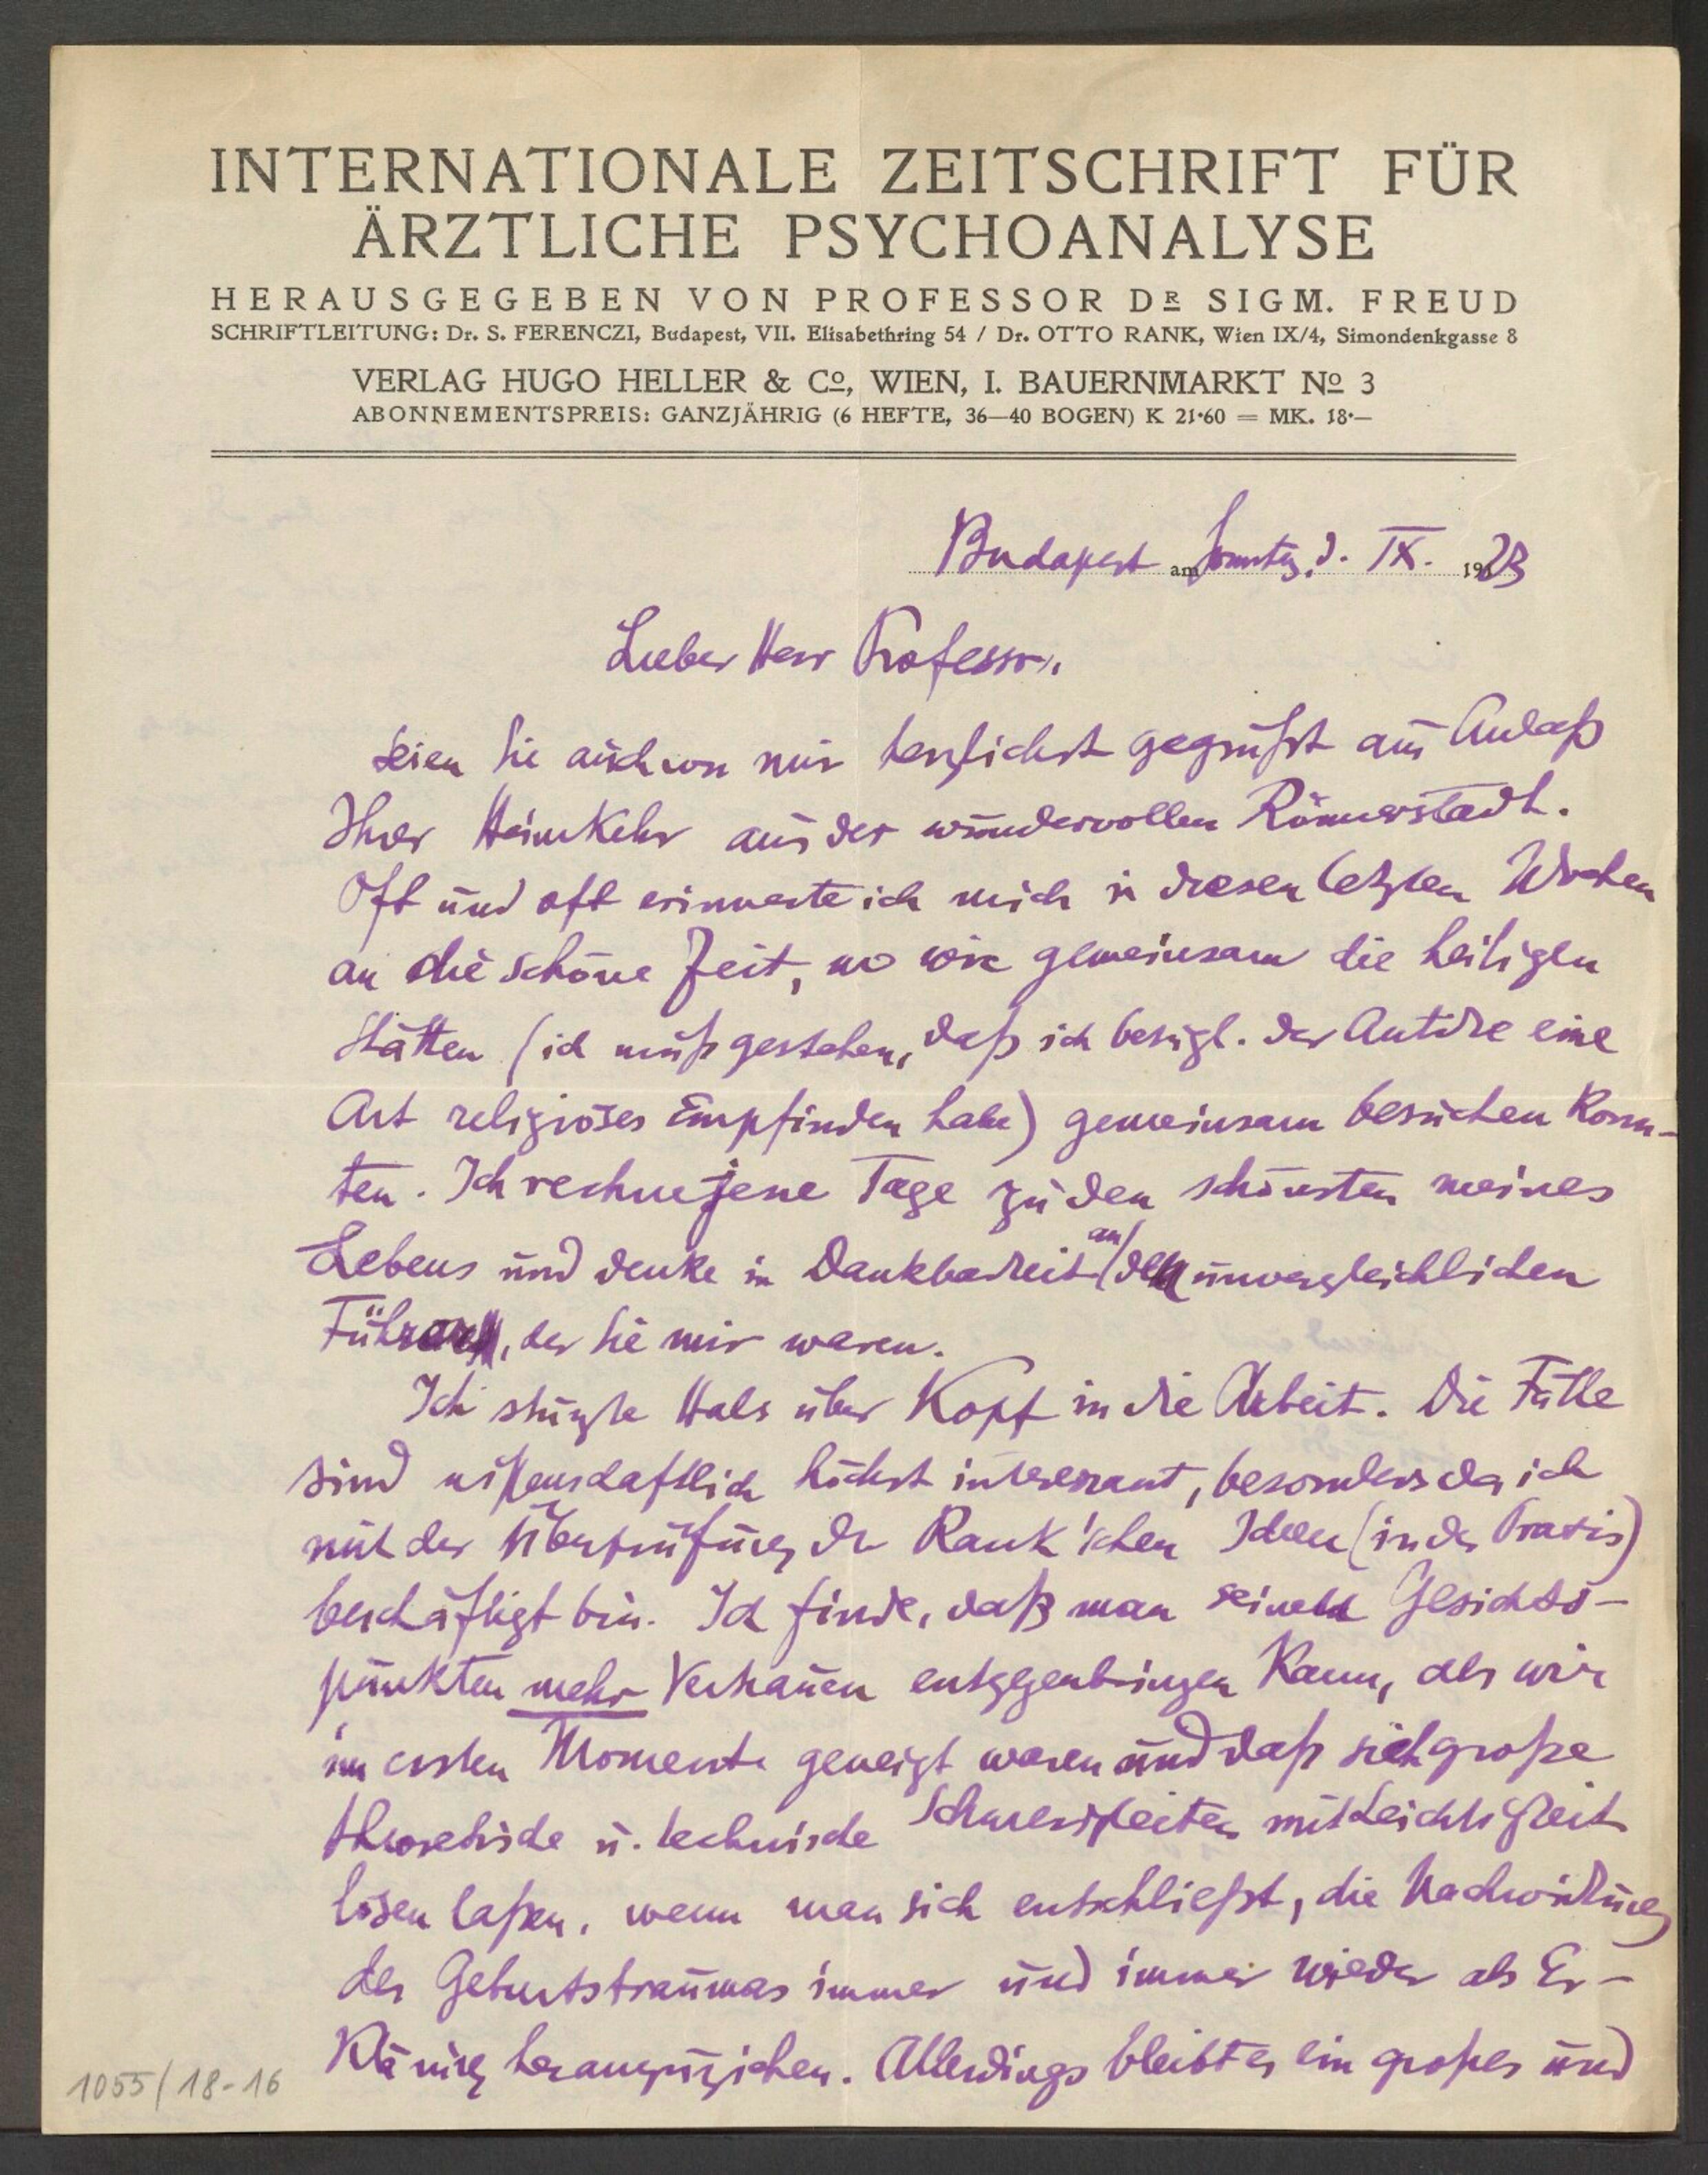 INTERNATIONALE ZEITSCHRIFT FÜR
ÄRZTLICHE PSYCHOANALYSE
HERAUSGEGEBEN VON PROFESSOR DR SIGM. FREUD
SCHRIFTLEITUNG: Dr. S. FERENCZI, Budapest, VII. Elisabethring 54 / Dr. OTTO RANK, Wien IX/4, Simondenkgasse 8
VERLAG HUGO HELLER & Co, WIEN, I. BAUERNMARKT No 3
ABONNEMENTSPREIS: GANZJÄHRIG (6 HEFTE, 36—40 BOGEN) K 21·60 = MK. 18·—
Budapest am IX. 1923
Lieber Herr Professor,
seien Sie auch von mir herzlichst gegrüßt aus Anlaß
Ihrer Heimkehr aus der wundervollen Römerstadt.
Oft und oft erinnerte ich mich in diesen letzten Wochen
an die schöne Zeit, wo wir gemeinsam die heiligen
Stätten (ich muß gestehen, daß ich bezügl. der Antike eine
Art religiöses Empfinden habe) gemeinsam besuchen konn-
ten. Ich rechne jene Tage zu den schönsten meines
Lebens und denke in Dankbarkeit an den unvergleichlichen
Führer, der Sie mir waren.
Ich stürzte Hals über Kopf in die Arbeit. Die Fälle
sind wißenschaftlich höchst interessant, besonders da ich
mit der Überprüfung der Rank'schen Ideen (in der Praxis)
beschäftigt bin. Ich finde, daß man seinen Gesichts-
punkten mehr Vertrauen entgegenbringen kann, als wir
im ersten Momente geneigt waren und daß sich große
theoretische u. technische Schwierigkeiten mit Leichtigkeit
lösen laßen, wenn man sich entschließt, die Nachwirkung
des Geburtstraumas immer und immer wieder als Er-
klärung heranzuziehen. Allerdings bleibt es ein großes und
1055/18-16